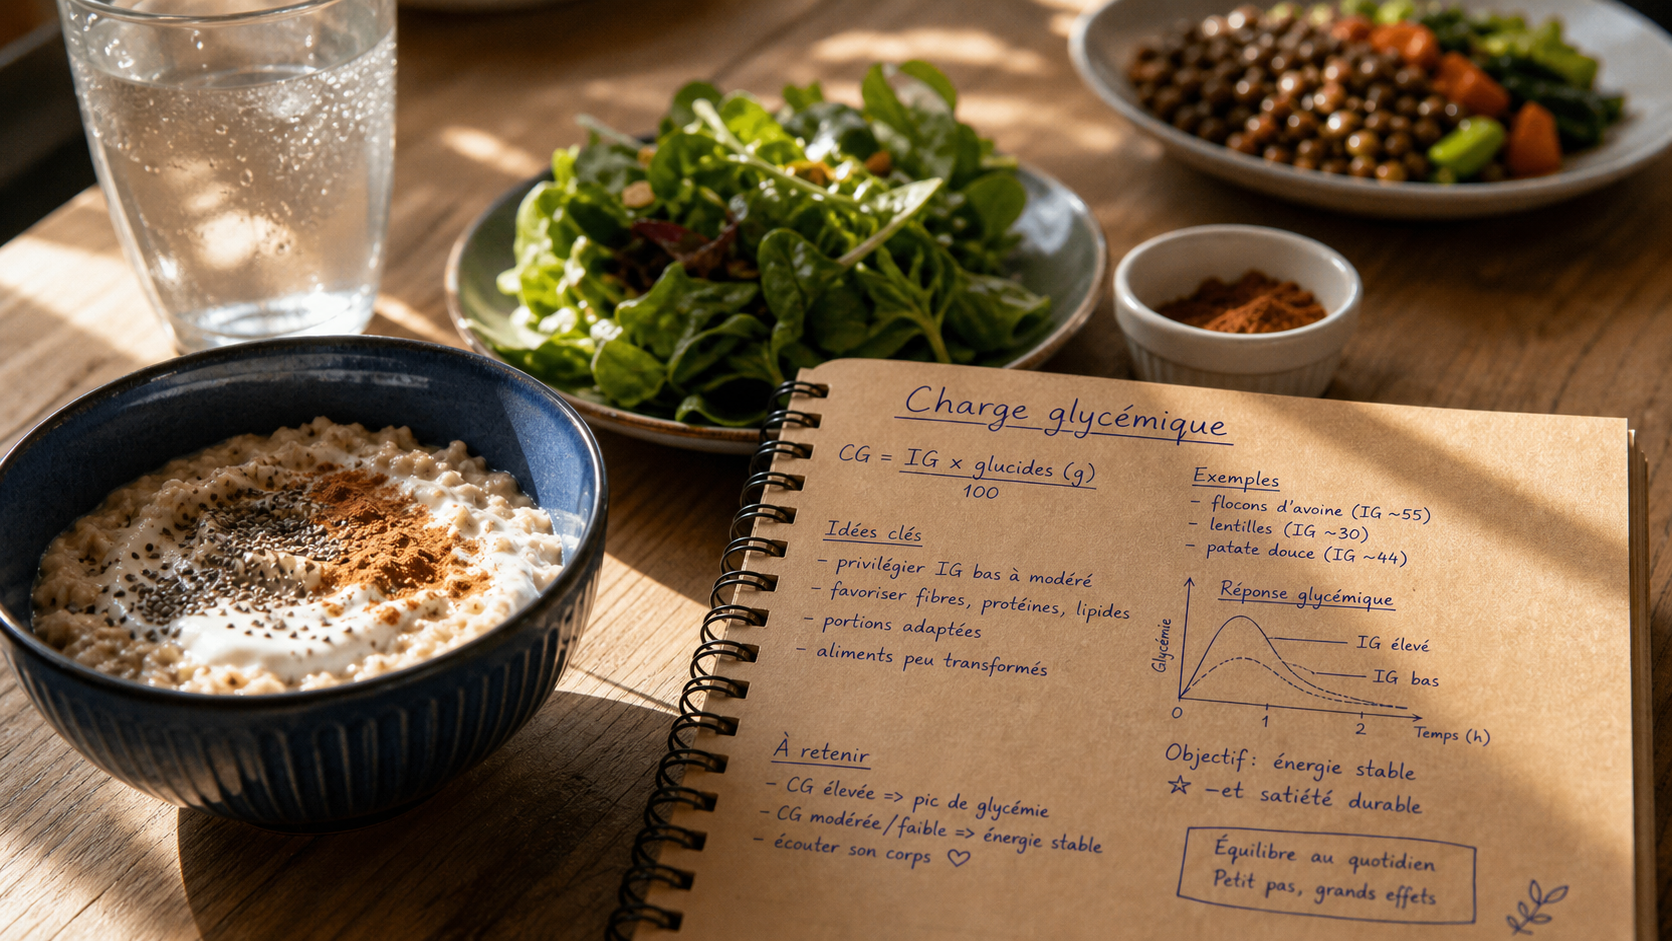 Charge glycémique
CG = IG x glucides (g)
100
Idées clés
- privilégier IG bas à modéré
- favoriser fibres, protéines, lipides
- portions adaptées
- aliments peu transformés
À retenir
- CG élevée => pic de glycémie
- CG modérée/faible => énergie stable
- écouter son corps ♡
Exemples
- flocons d'avoine (IG ~55)
- lentilles (IG ~30)
- patate douce (IG ~44)
Réponse glycémique
Glycémie
IG élevé
IG bas
0 1 2 Temps (h)
Objectif: énergie stable
☆ -et satiété durable
Équilibre au quotidien
Petit pas, grands effets